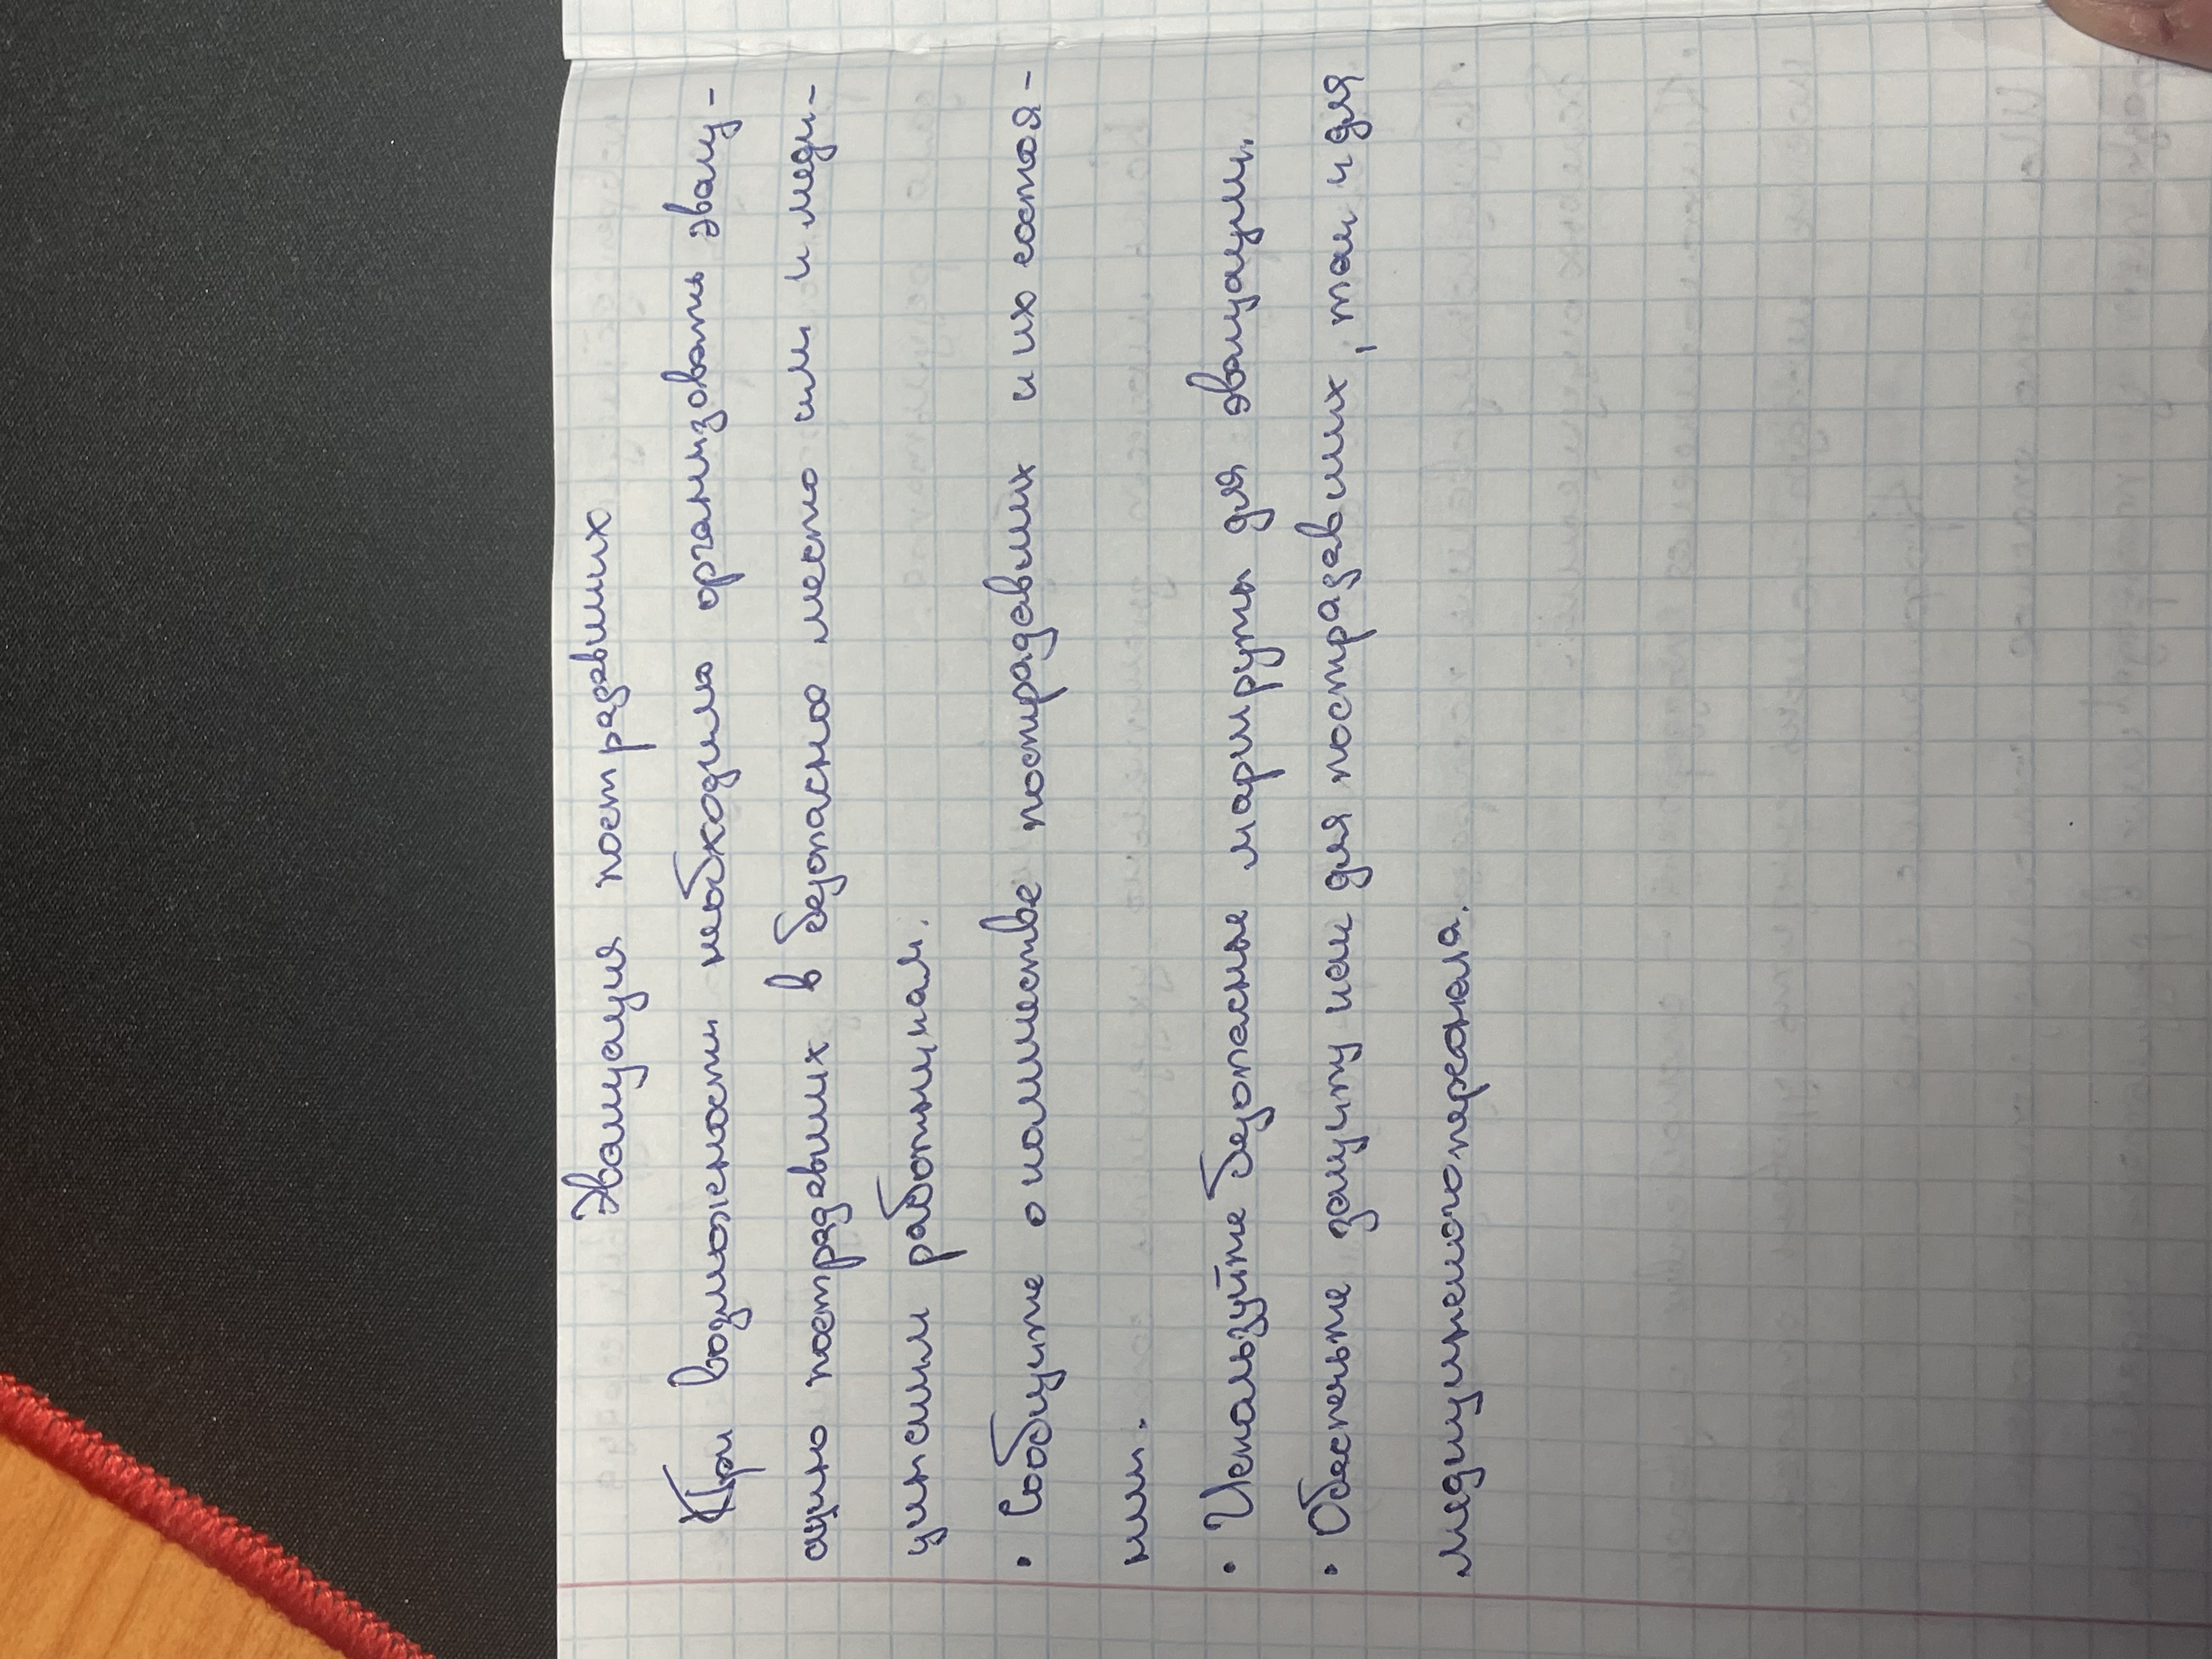 Эвакуация пострадавших
При возможности необходимо организовать эваку-
ацию пострадавших в безопасное место или к меди-
цинским работникам.
• Сообщите о количестве пострадавших и их состоя-
нии.
• Используйте безопасные маршруты для эвакуации.
• Обеспечьте защиту как для пострадавших, так и для
медицинского персонала.